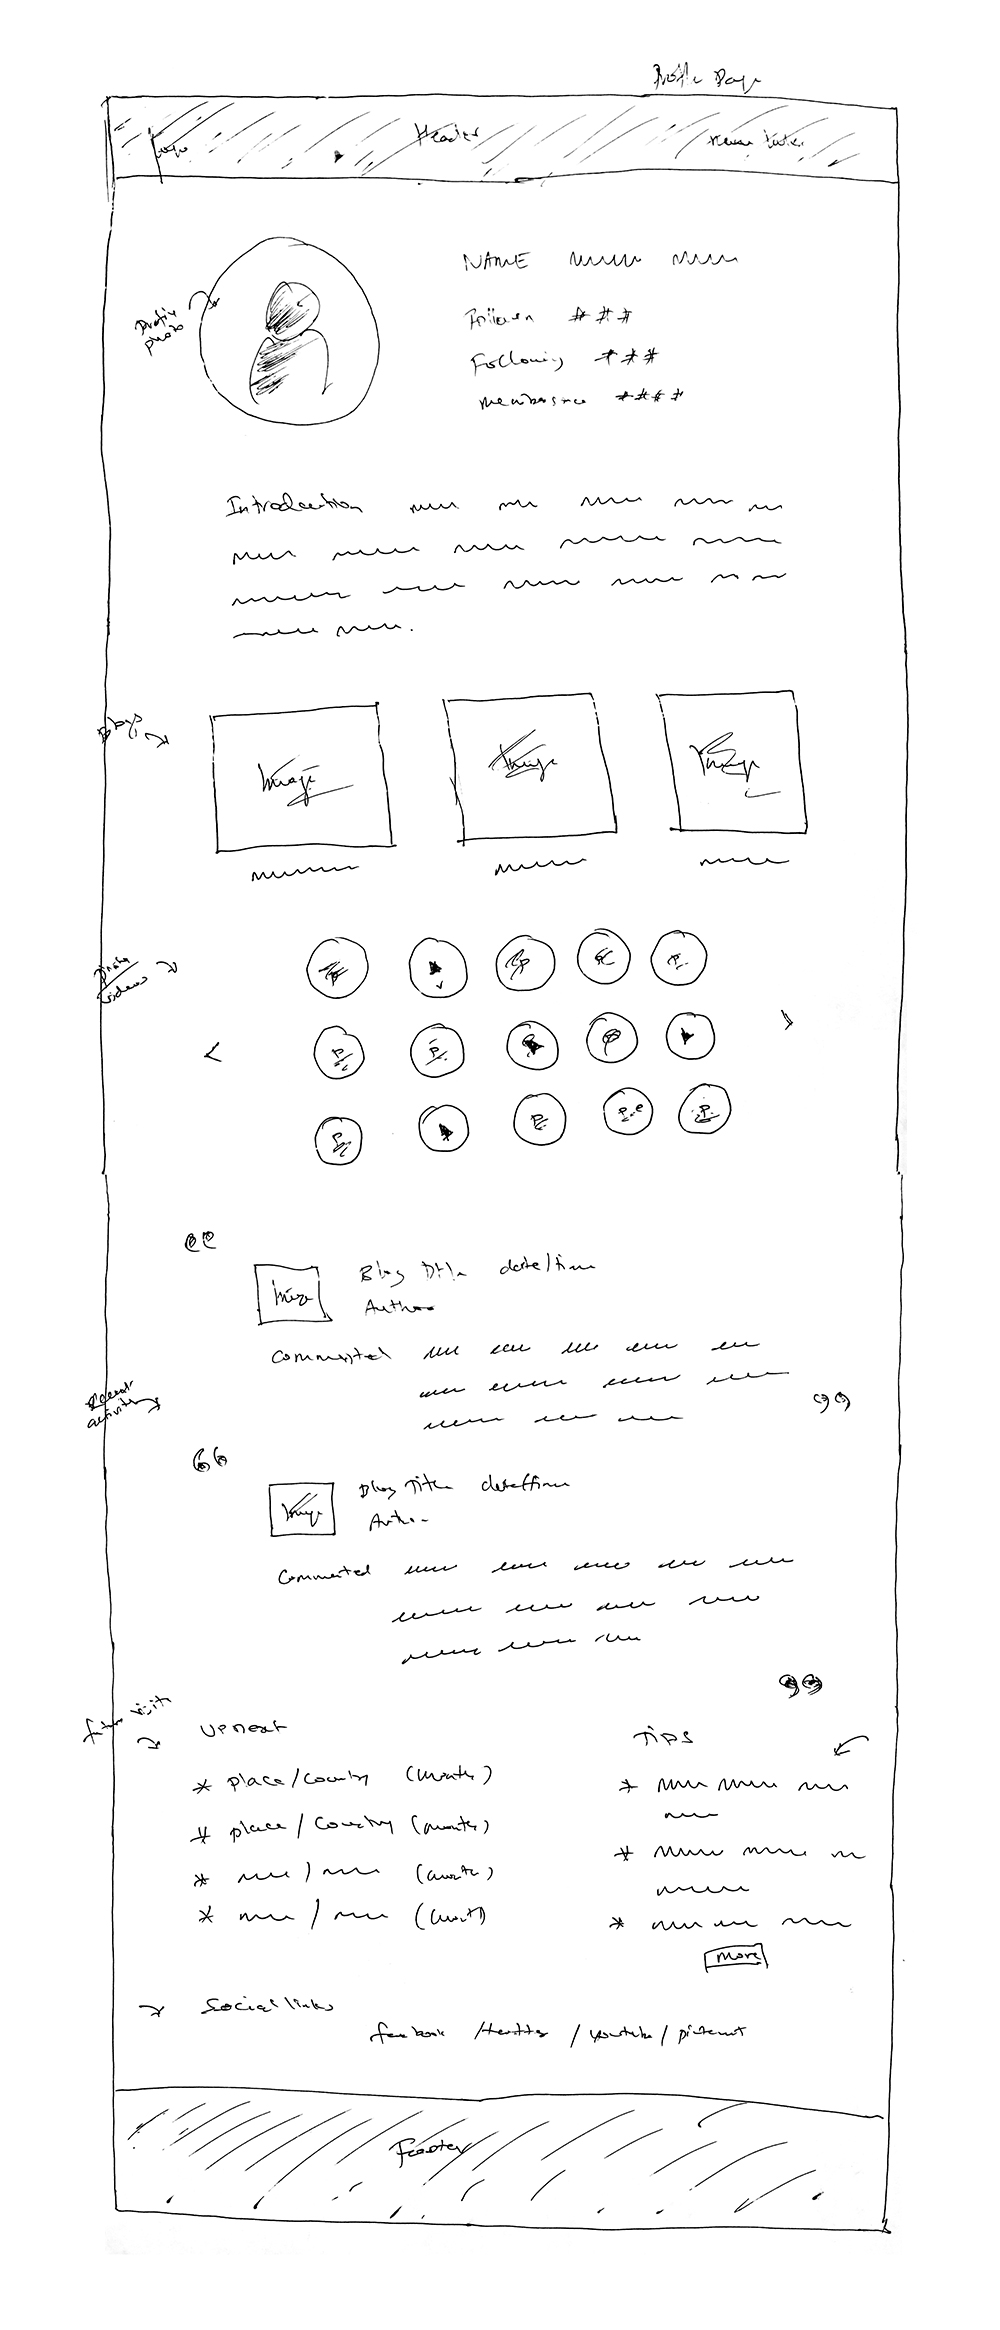 Profile Page
Logo Header
Profile photo
NAME
Followers ###
Following ***
Member since ****
Introduction
Blogs
Image Image Image
Photos
videos
< >
Image Blog Title date/time
Author
Commented
Recent
activity
Image Blog Title date/time
Author
Commented
future visits
UPNEXT TIPS
* place/Country (month)
* place/Country (month)
* / (month)
* / (month)
More
Social links
facebook /twitter / youtube / pinterest
Footer